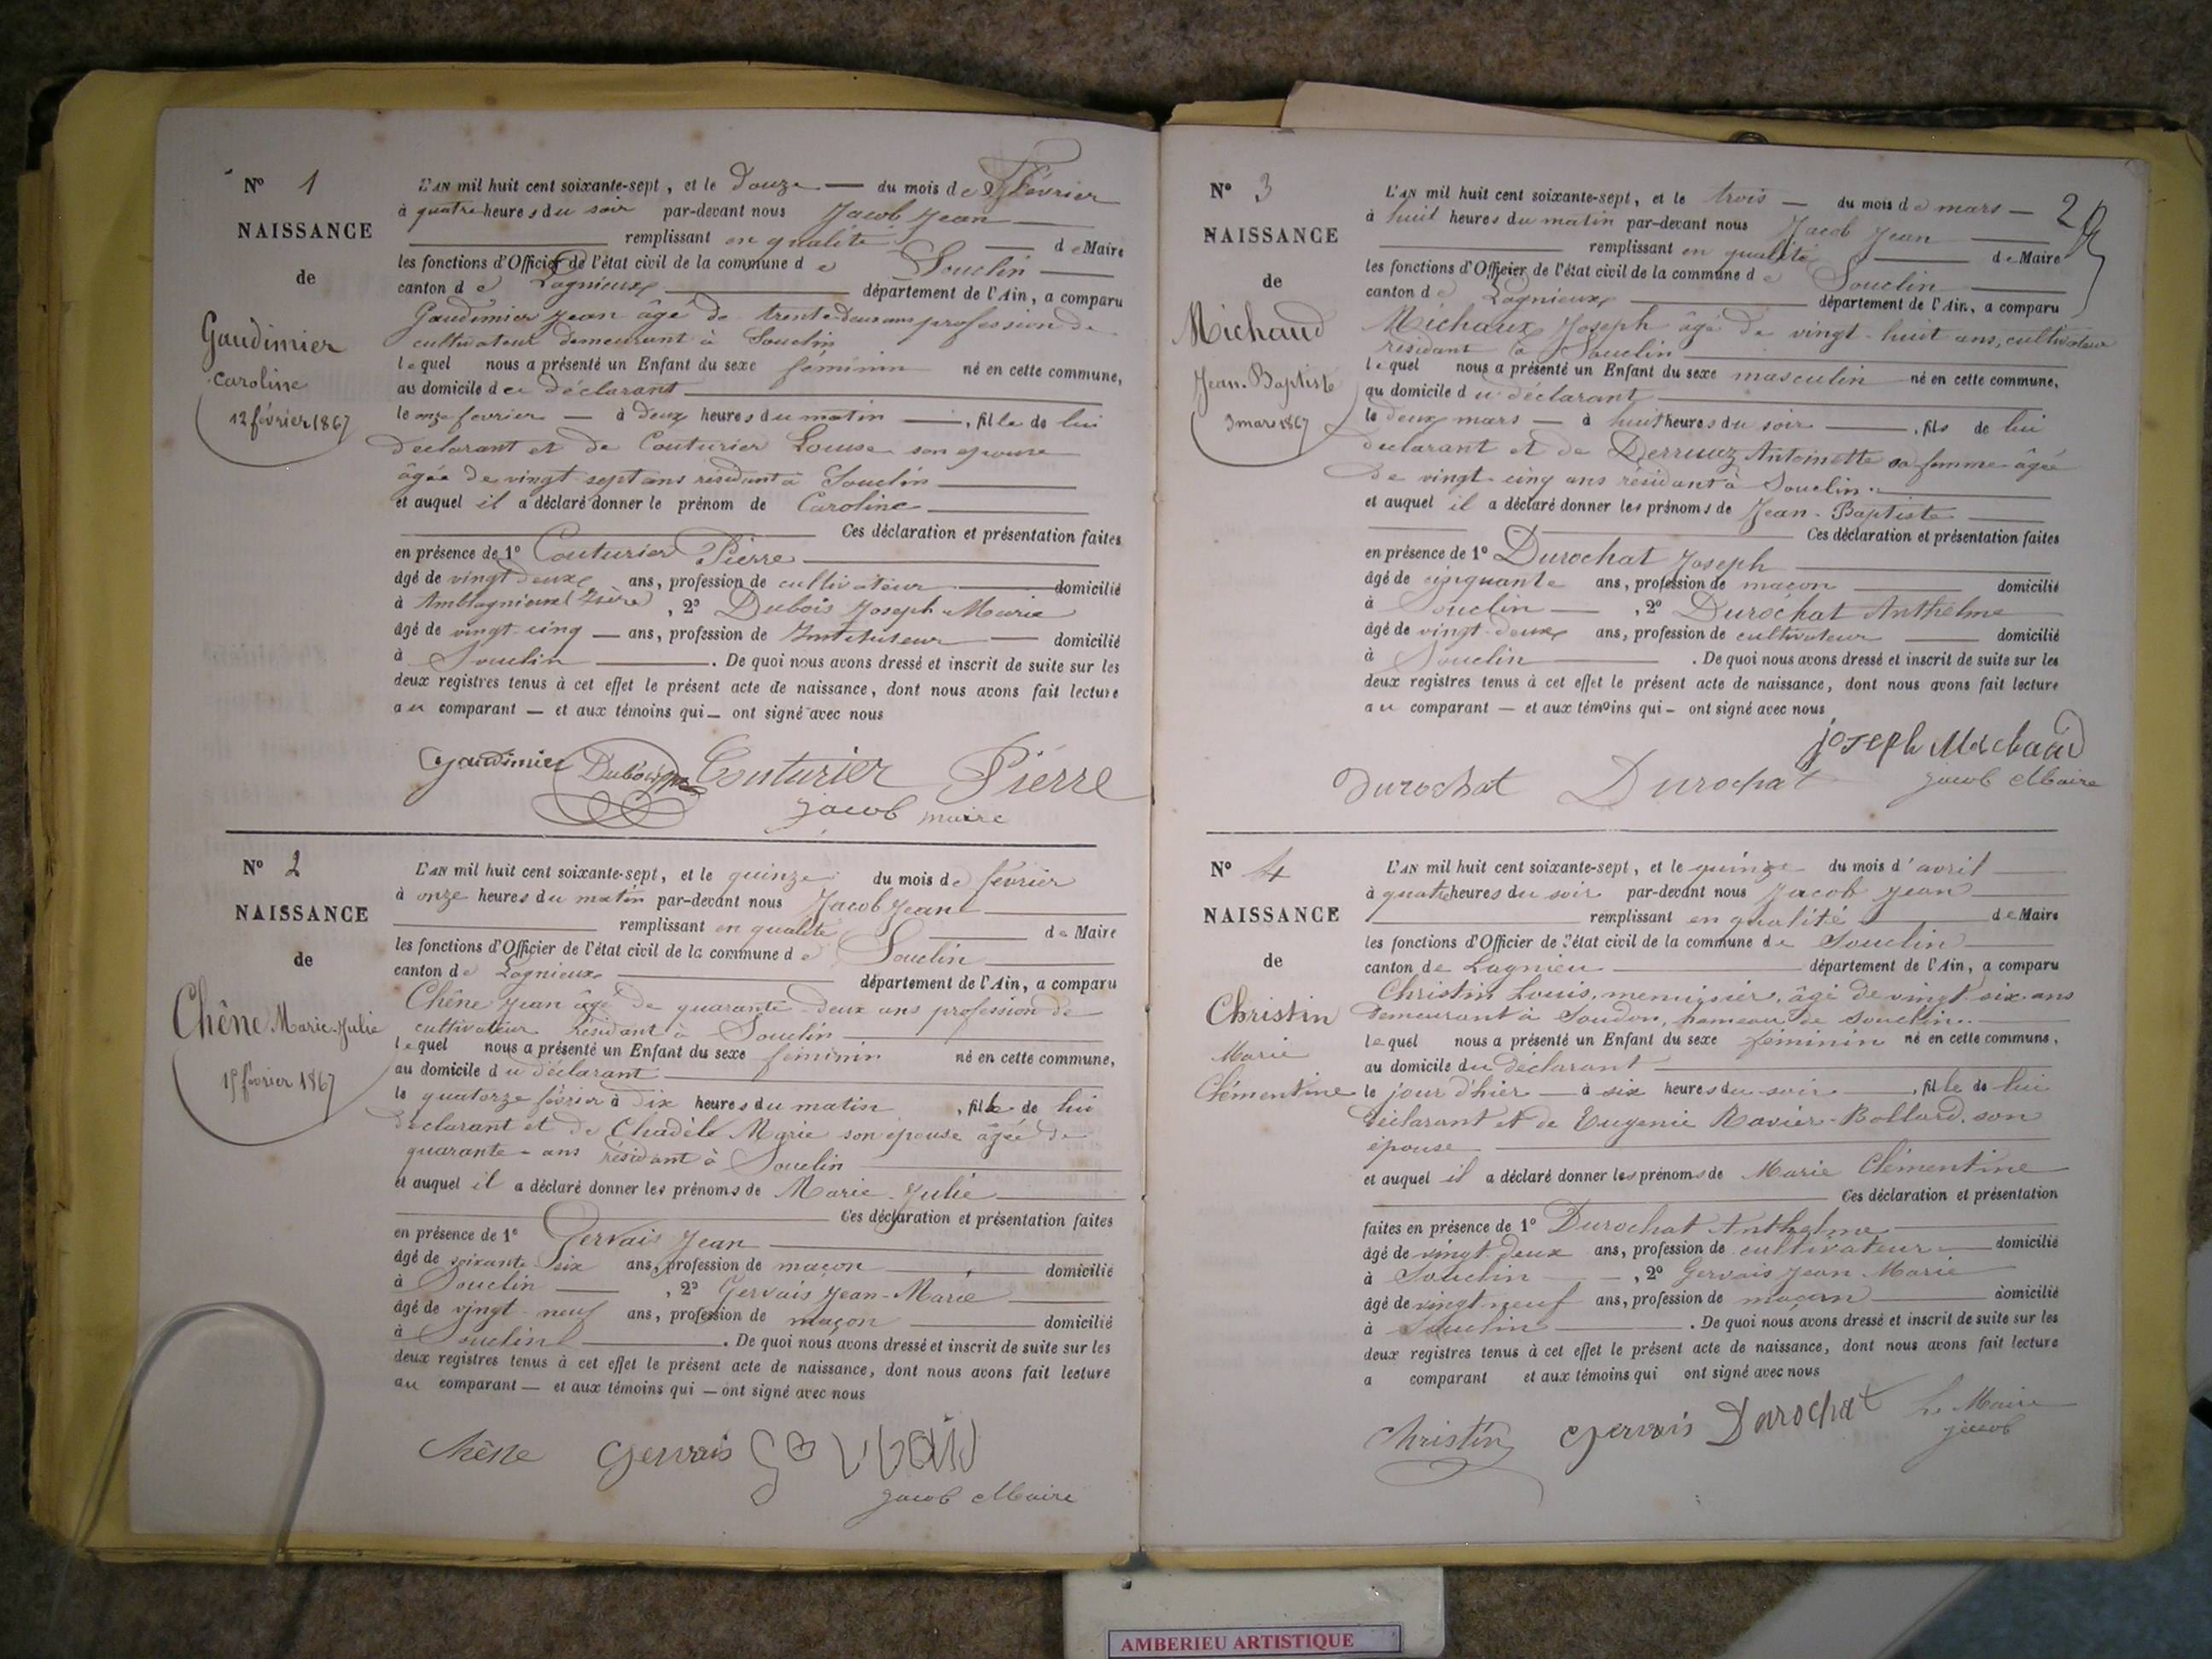 N° 1
NAISSANCE
de
Gaudimier
Caroline
12 février 1867
L'AN mil huit cent soixante-sept, et le douze — du mois de Février
à quatre heures du soir par-devant nous Jacob Jean
remplissant en qualité de Maire
les fonctions d'Officier de l'état civil de la commune de Souclin
canton de Lagnieux département de l'Ain, a comparu
Gaudimier Jean âgé de trente-deux ans profession de
cultivateur demeurant à Souclin
lequel nous a présenté un Enfant du sexe féminin né en cette commune,
au domicile du déclarant
le onze février — à deux heures du matin —, fille de lui
déclarant et de Couturier Louise son épouse
âgée de vingt-sept ans résidant à Souclin
et auquel il a déclaré donner le prénom de Caroline
Ces déclaration et présentation faites
en présence de 1° Couturier Pierre
âgé de vingt-deux ans, profession de cultivateur domicilié
à Amblagnieux (Isère), 2° Dubois Joseph-Marie
âgé de vingt-cinq — ans, profession de Instituteur — domicilié
à Souclin . De quoi nous avons dressé et inscrit de suite sur les
deux registres tenus à cet effet le présent acte de naissance, dont nous avons fait lecture
au comparant — et aux témoins qui — ont signé avec nous
Gaudimier Dubois Couturier Pierre
Jacob maire
N° 2
NAISSANCE
de
Chêne Marie-Julie
15 février 1867
L'AN mil huit cent soixante-sept, et le quinze du mois de février
à onze heures du matin par-devant nous Jacob Jean
remplissant en qualité de Maire
les fonctions d'Officier de l'état civil de la commune de Souclin
canton de Lagnieux département de l'Ain, a comparu
Chêne Jean âgé de quarante-deux ans profession de
cultivateur résidant à Souclin
lequel nous a présenté un Enfant du sexe féminin né en cette commune,
au domicile du déclarant
le quatorze février à dix heures du matin, fille de lui
déclarant et de Chadèle Marie son épouse âgée de
quarante-ans résidant à Souclin
et auquel il a déclaré donner les prénoms de Marie-Julie
Ces déclaration et présentation faites
en présence de 1° Gervais Jean
âgé de soixante-six ans, profession de maçon domicilié
à Souclin —, 2° Gervais Jean-Marie
âgé de vingt-neuf ans, profession de maçon domicilié
à Souclin . De quoi nous avons dressé et inscrit de suite sur les
deux registres tenus à cet effet le présent acte de naissance, dont nous avons fait lecture
au comparant — et aux témoins qui — ont signé avec nous
Chêne Gervais Gervais
Jacob Maire
2
N° 3
NAISSANCE
de
Michaud
Jean-Baptiste
3 mars 1867
L'AN mil huit cent soixante-sept, et le trois — du mois de mars —
à huit heures du matin par-devant nous Jacob Jean
remplissant en qualité de Maire
les fonctions d'Officier de l'état civil de la commune de Souclin
canton de Lagnieux département de l'Ain, a comparu
Michaux Joseph âgé de vingt-huit ans, cultivateur
résidant à Souclin
lequel nous a présenté un Enfant du sexe masculin né en cette commune,
au domicile du déclarant
le deux mars — à huit heures du soir —, fils de lui
déclarant et de Derruaz Antoinette sa femme âgée
de vingt-cinq ans résidant à Souclin.
et auquel il a déclaré donner les prénoms de Jean-Baptiste
Ces déclaration et présentation faites
en présence de 1° Durochat Joseph
âgé de cinquante ans, profession de maçon domicilié
à Souclin —, 2° Durochat Anthelme
âgé de vingt-deux ans, profession de cultivateur domicilié
à Souclin . De quoi nous avons dressé et inscrit de suite sur les
deux registres tenus à cet effet le présent acte de naissance, dont nous avons fait lecture
au comparant — et aux témoins qui — ont signé avec nous
joseph Michaud
Durochat Durochat Jacob Maire
N° 4
NAISSANCE
de
Christin
Marie
Clémentine
L'AN mil huit cent soixante-sept, et le quinze du mois d'avril
à quatre heures du soir par-devant nous Jacob Jean
remplissant en qualité de Maire
les fonctions d'Officier de l'état civil de la commune de Souclin
canton de Lagnieu département de l'Ain, a comparu
Christin Louis, menuisier, âgé de vingt-six ans
demeurant à Soudon, hameau de Souclin.
lequel nous a présenté un Enfant du sexe féminin né en cette commune,
au domicile du déclarant
le jour d'hier — à six heures du soir —, fille de lui
déclarant et de Eugénie Ravier-Bollard, son
épouse
et auquel il a déclaré donner les prénoms de Marie Clémentine
Ces déclaration et présentation
faites en présence de 1° Durochat Anthelme
âgé de vingt-deux ans, profession de cultivateur domicilié
à Souclin —, 2° Gervais Jean-Marie
âgé de vingt neuf ans, profession de maçon domicilié
à Souclin . De quoi nous avons dressé et inscrit de suite sur les
deux registres tenus à cet effet le présent acte de naissance, dont nous avons fait lecture
a comparant et aux témoins qui ont signé avec nous
Christin Gervais Durochat Le Maire
Jacob
AMBERIEU ARTISTIQUE